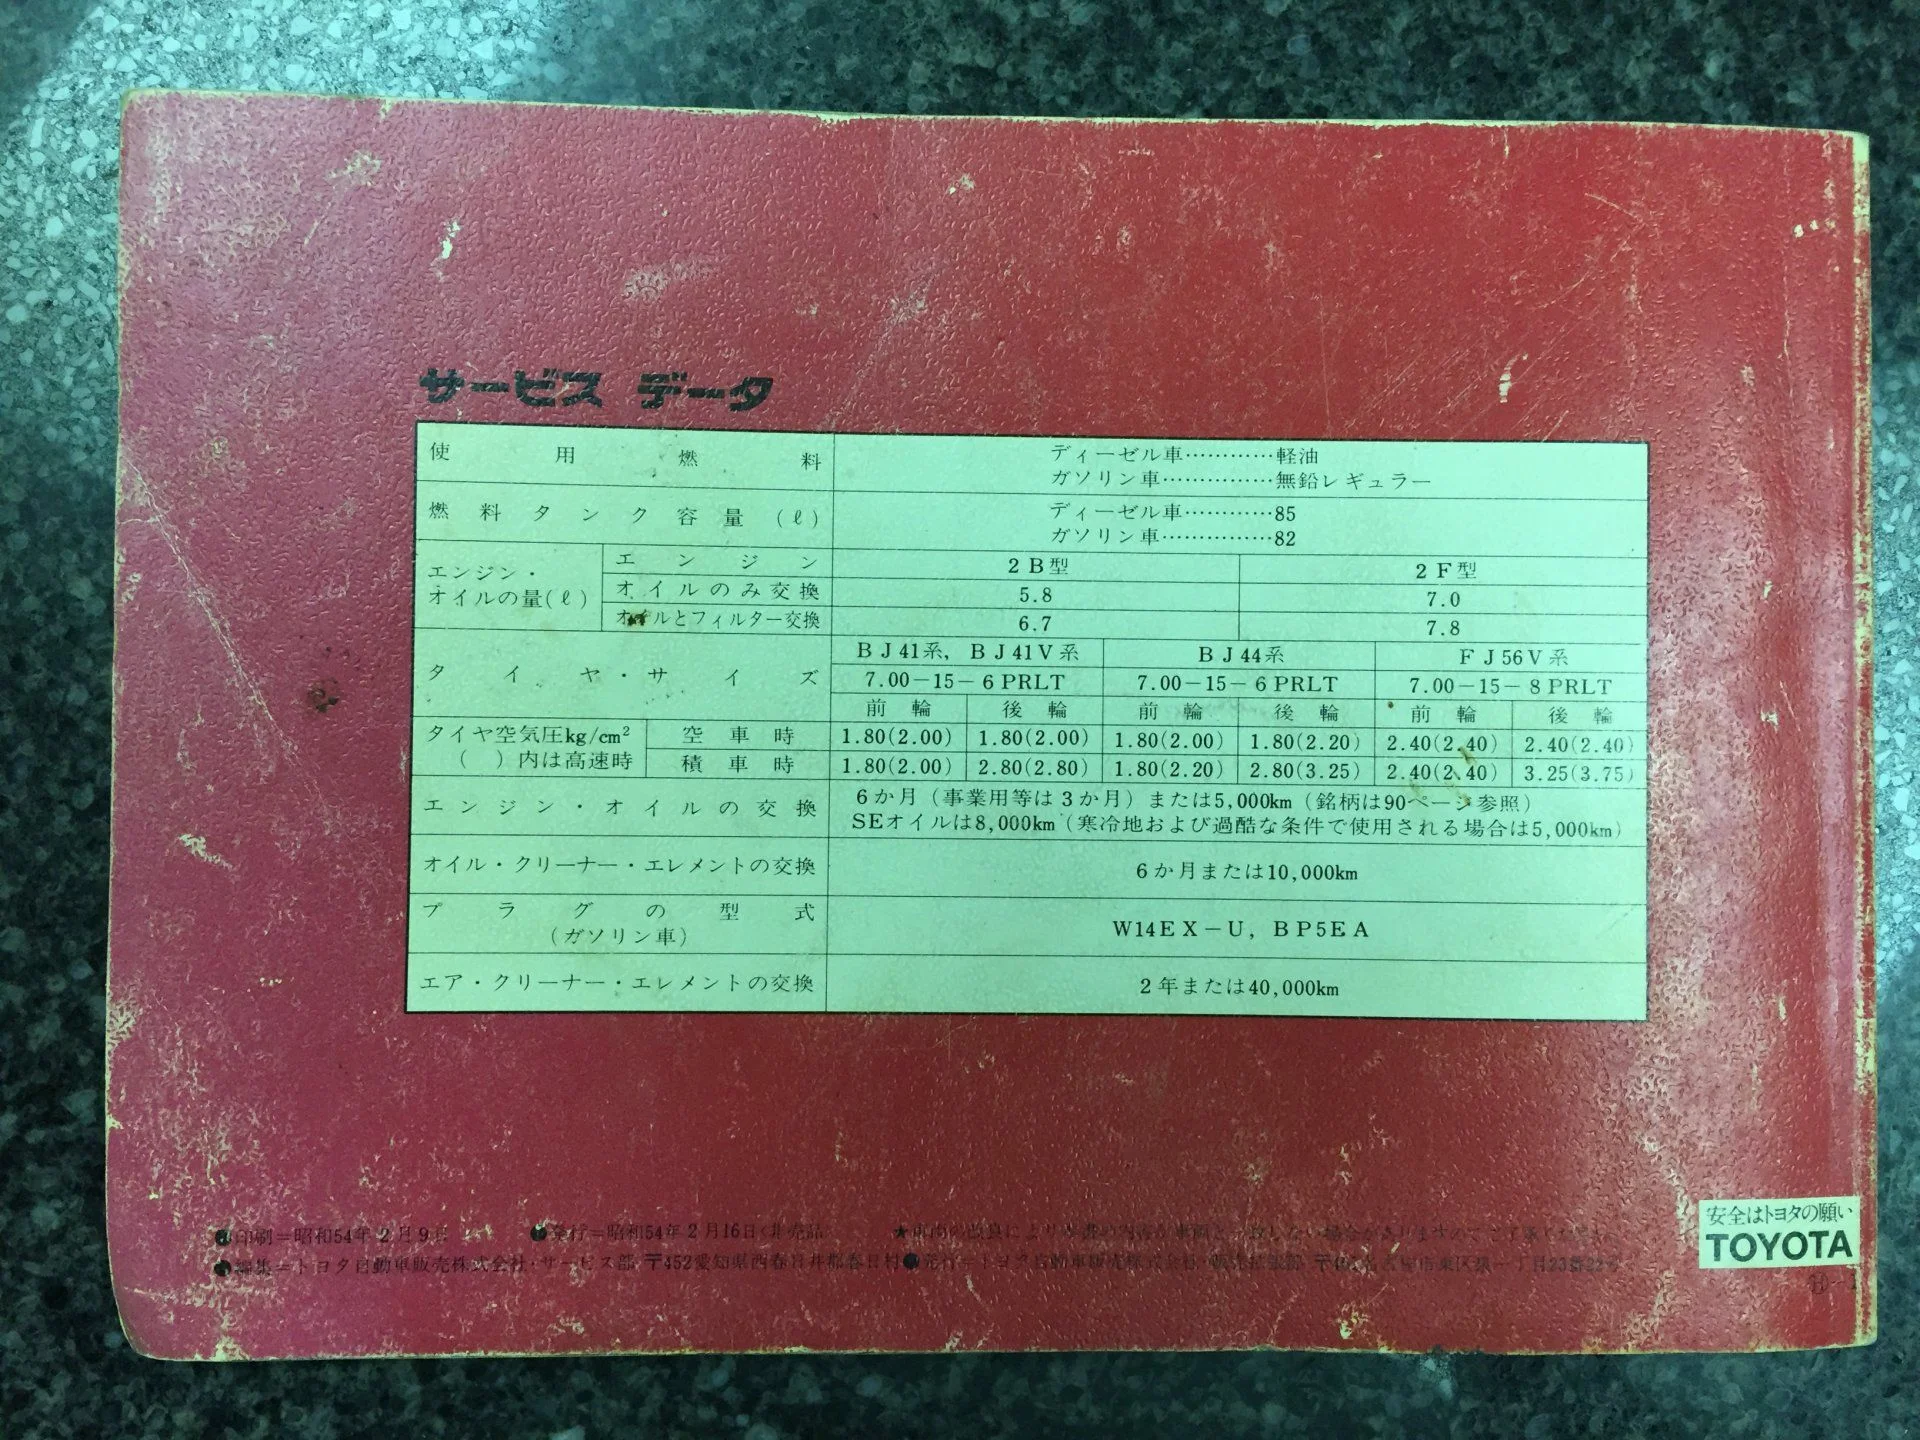 サービス データ
使用燃料 ディーゼル車…………軽油
ガソリン車……………無鉛レギュラー
燃料タンク容量(ℓ) ディーゼル車…………85
ガソリン車……………82
エンジン・オイルの量(ℓ) エンジン 2B型 2F型
オイルのみ交換 5.8 7.0
オイルとフィルター交換 6.7 7.8
タイヤ・サイズ BJ41系, BJ41V系 BJ44系 FJ56V系
7.00-15-6PRLT 7.00-15-6PRLT 7.00-15-8PRLT
前輪 後輪 前輪 後輪 前輪 後輪
タイヤ空気圧kg/cm² 空車時 1.80(2.00) 1.80(2.00) 1.80(2.00) 1.80(2.20) 2.40(2.40) 2.40(2.40)
( )内は高速時 積車時 1.80(2.00) 2.80(2.80) 1.80(2.20) 2.80(3.25) 2.40(2.40) 3.25(3.75)
エンジン・オイルの交換 6か月(事業用等は3か月)または5,000km(銘柄は90ページ参照)
SEオイルは8,000km(寒冷地および過酷な条件で使用される場合は5,000km)
オイル・クリーナー・エレメントの交換 6か月または10,000km
プラグの型式 W14EX-U, BP5EA
(ガソリン車)
エア・クリーナー・エレメントの交換 2年または40,000km
●印刷=昭和54年2月9日 ●発行=昭和54年2月16日<非売品> ★車両の改良により本書の内容が車両と一致しない場合がありますのでご了承ください。
●編集=トヨタ自動車販売株式会社・サービス部 〒452愛知県西春日井郡春日村 ●発行=トヨタ自動車販売株式会社 名古屋市東区泉一丁目23番22号
安全はトヨタの願い
TOYOTA